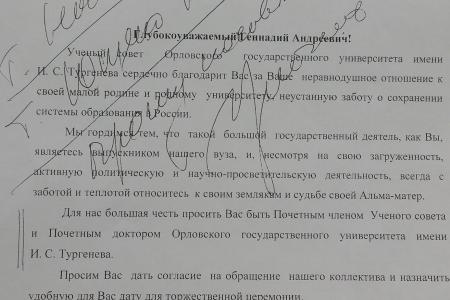 Глубокоуважаемый Геннадий Андреевич!
Ученый совет Орловского государственного университета имени
И. С. Тургенева сердечно благодарит Вас за Ваше неравнодушное отношение к
своей малой родине и родному университету, неустанную заботу о сохранении
системы образования в России.
Мы гордимся тем, что такой большой государственный деятель, как Вы,
являетесь выпускником нашего вуза, и, несмотря на свою загруженность,
активную политическую и научно-просветительскую деятельность, всегда с
заботой и теплотой относитесь к своим землякам и судьбе своей Альма-матер.
Для нас большая честь просить Вас быть Почетным членом Ученого совета
и Почетным доктором Орловского государственного университета имени
И. С. Тургенева.
Просим Вас дать согласие на обращение нашего коллектива и назначить
удобную для Вас дату для торжественной церемонии.